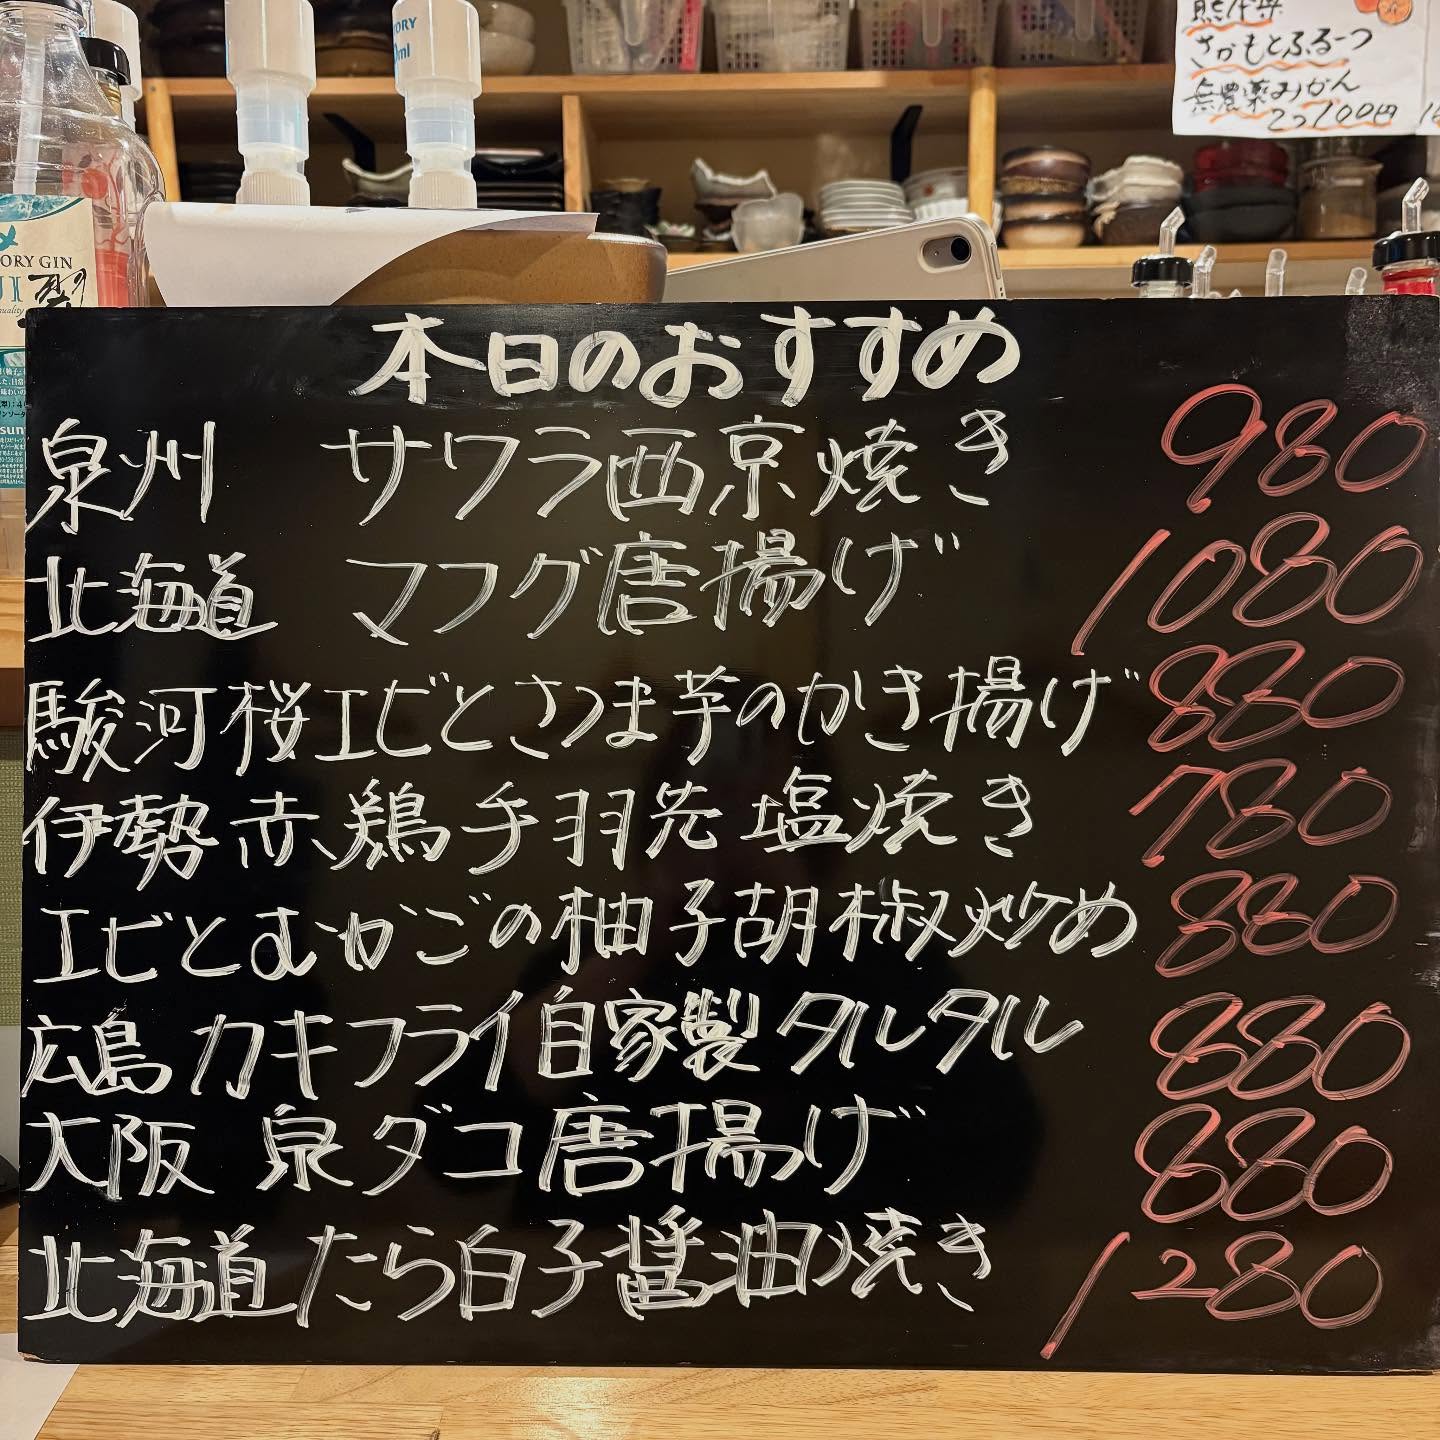 さかもとふるーつ
無農薬みかん
2コ100円
ORY GIN
本日のおすすめ
泉州 サワラ西京焼き 980
北海道 マフグ唐揚げ 1080
駿河桜エビとさつま芋のかき揚げ 880
伊勢赤鶏手羽先塩焼き 780
エビとむかごの柚子胡椒炒め 880
広島カキフライ自家製タルタル 880
大阪 泉ダコ唐揚げ 880
北海道たら白子醤油焼き 1280